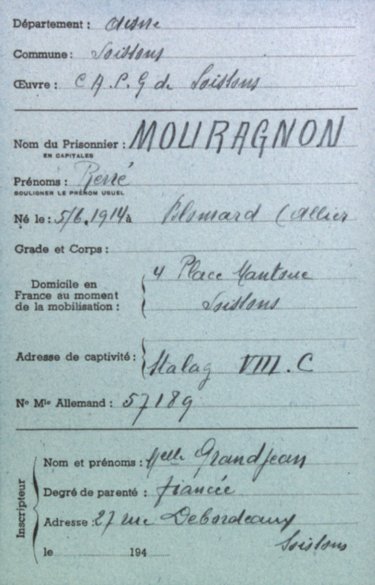 Département : Aisne
Commune : Soissons
Œuvre : C A. P. G de Soissons
Nom du Prisonnier : MOURAGNON
EN CAPITALES
Prénoms : René
SOULIGNER LE PRÉNOM USUEL
Né le : 5/6.1914 à Blomard (Allier
Grade et Corps :
Domicile en
France au moment
de la mobilisation :
4 Place
Soissons
Adresse de captivité : Stalag VIII. C
No Mle Allemand : 57189
Inscripteur
Nom et prénoms : Melle Grandjean
Degré de parenté : fiancée
Adresse 27 rue Debordeaux
Soissons
le 194